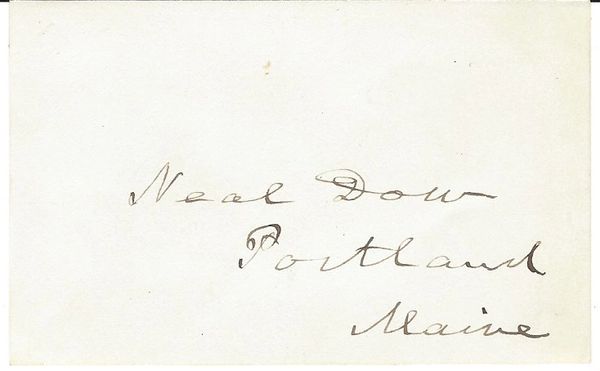 Neal Dow
Portland
Maine